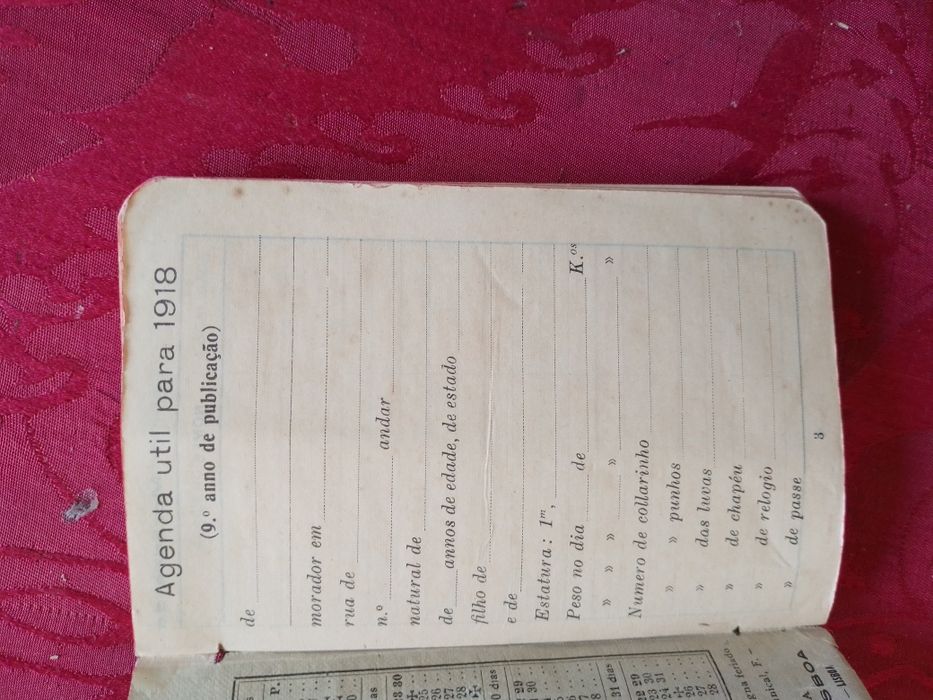 Agenda util para 1918
(9.º anno de publicação)
de
morador em
rua de
n.º andar
natural de
de annos de edade, de estado
filho de
e de
Estatura: 1ᵐ,
Peso no dia de K.ºˢ
» » » » »
Numero de collarinho
» » punhos
» das luvas
» de chapéu
» de relogio
» de passe
3
P.
30
dias
31 dias
LISBOA